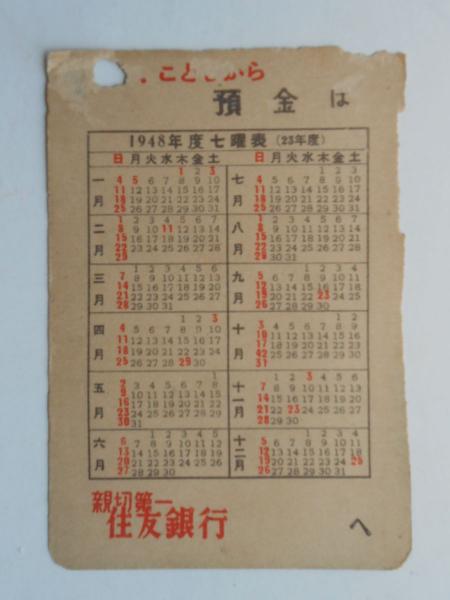 ことしから
預金は
1948年度七曜表 (23年度)
日月火水木金土
一月
1 2 3
4 5 6 7 8 9 10
11 12 13 14 15 16 17
18 19 20 21 22 23 24
25 26 27 28 29 30 31
二月
1 2 3 4 5 6 7
8 9 10 11 12 13 14
15 16 17 18 19 20 21
22 23 24 25 26 27 28
29
三月
1 2 3 4 5 6
7 8 9 10 11 12 13
14 15 16 17 18 19 20
21 22 23 24 25 26 27
28 29 30 31
四月
1 2 3
4 5 6 7 8 9 10
11 12 13 14 15 16 17
18 19 20 21 22 23 24
25 26 27 28 29 30
五月
1
2 3 4 5 6 7 8
9 10 11 12 13 14 15
16 17 18 19 20 21 22
23 24 25 26 27 28 29
30 31
六月
1 2 3 4 5
6 7 8 9 10 11 12
13 14 15 16 17 18 19
20 21 22 23 24 25 26
27 28 29 30
日月火水木金土
七月
1 2 3
4 5 6 7 8 9 10
11 12 13 14 15 16 17
18 19 20 21 22 23 24
25 26 27 28 29 30 31
八月
1 2 3 4 5 6 7
8 9 10 11 12 13 14
15 16 17 18 19 20 21
22 23 24 25 26 27 28
29 30 31
九月
1 2 3 4
5 6 7 8 9 10 11
12 13 14 15 16 17 18
19 20 21 22 23 24 25
26 27 28 29 30
十月
1 2
3 4 5 6 7 8 9
10 11 12 13 14 15 16
17 18 19 20 21 22 23
42 25 26 27 28 29 30
31
十一月
1 2 3 4 5 6
7 8 9 10 11 12 13
14 15 16 17 18 19 20
21 22 23 24 25 26 27
28 29 30
十二月
1 2 3 4
5 6 7 8 9 10 11
12 13 14 15 16 17 18
19 20 21 22 23 24 25
26 27 28 29 30 31
親切第一
住友銀行 へ